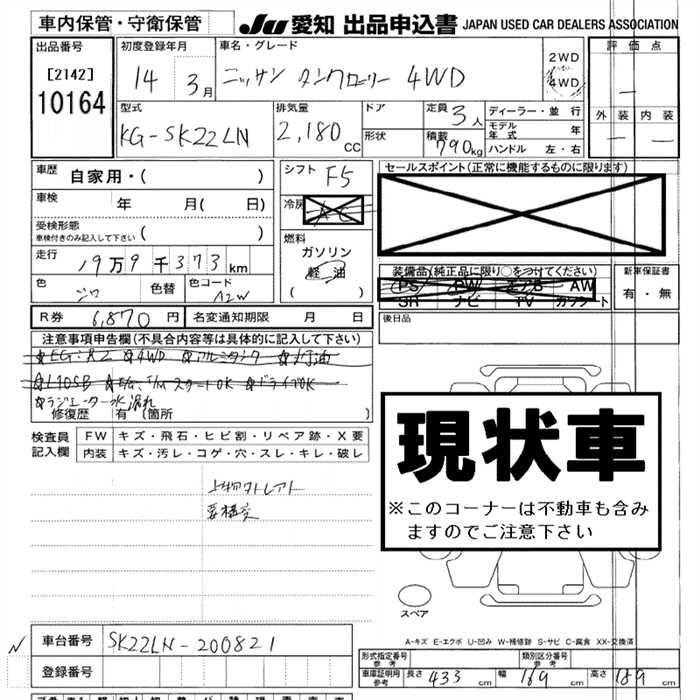 車内保管・守衛保管 JU 愛知 出品申込書 JAPAN USED CAR DEALERS ASSOCIATION
出品番号 初度登録年月 車名・グレード 評価点
[2142] 14年3月 ニッサン タンクローリー 4WD 2WD
10164 4WD
型式 排気量 ドア 定員 3人 ディーラー・並行 外装 内装
KG-SK22LN 2,180cc 形状 積載 790kg モデル年式 年
ハンドル 左・右
車歴 自家用・( ) シフト F5 セールスポイント(正常に機能するものに限ります)
車検 年 月( 日) 冷房 AC
受検形態 ( )
車検付きのみ記入して下さい
燃料
走行 19万9千373km ガソリン
軽油
( )
装備品(純正品に限り○をつけてください) 新車保証書
色 シロ 色替 色コード A2W PS PW エアB AW 有・無
SR ナビ TV カワシート
R券 6,870円 名変通知期限 月 日 後日品
注意事項申告欄(不具合内容等は具体的に記入して下さい)
☆4WD ☆アルミタンク
☆ラジエーター水漏れ
修復歴 有 (箇所 )
現状車
※このコーナーは不動車も含み
ますのでご注意下さい
検査員 FW キズ・飛石・ヒビ割・リペア跡・X要
記入欄 内装 キズ・汚レ・コゲ・穴・スレ・キレ・破レ
スペア
A-キズ E-エクボ U-凹み W-補修跡 S-サビ C-腐食 XX-交換済
N 車台番号 SK22LN-200821
登録番号
形式指定番号 参考 類別区分番号 参考
車庫証明用 参考 長さ 433 cm 幅 169 cm 高さ 189 cm